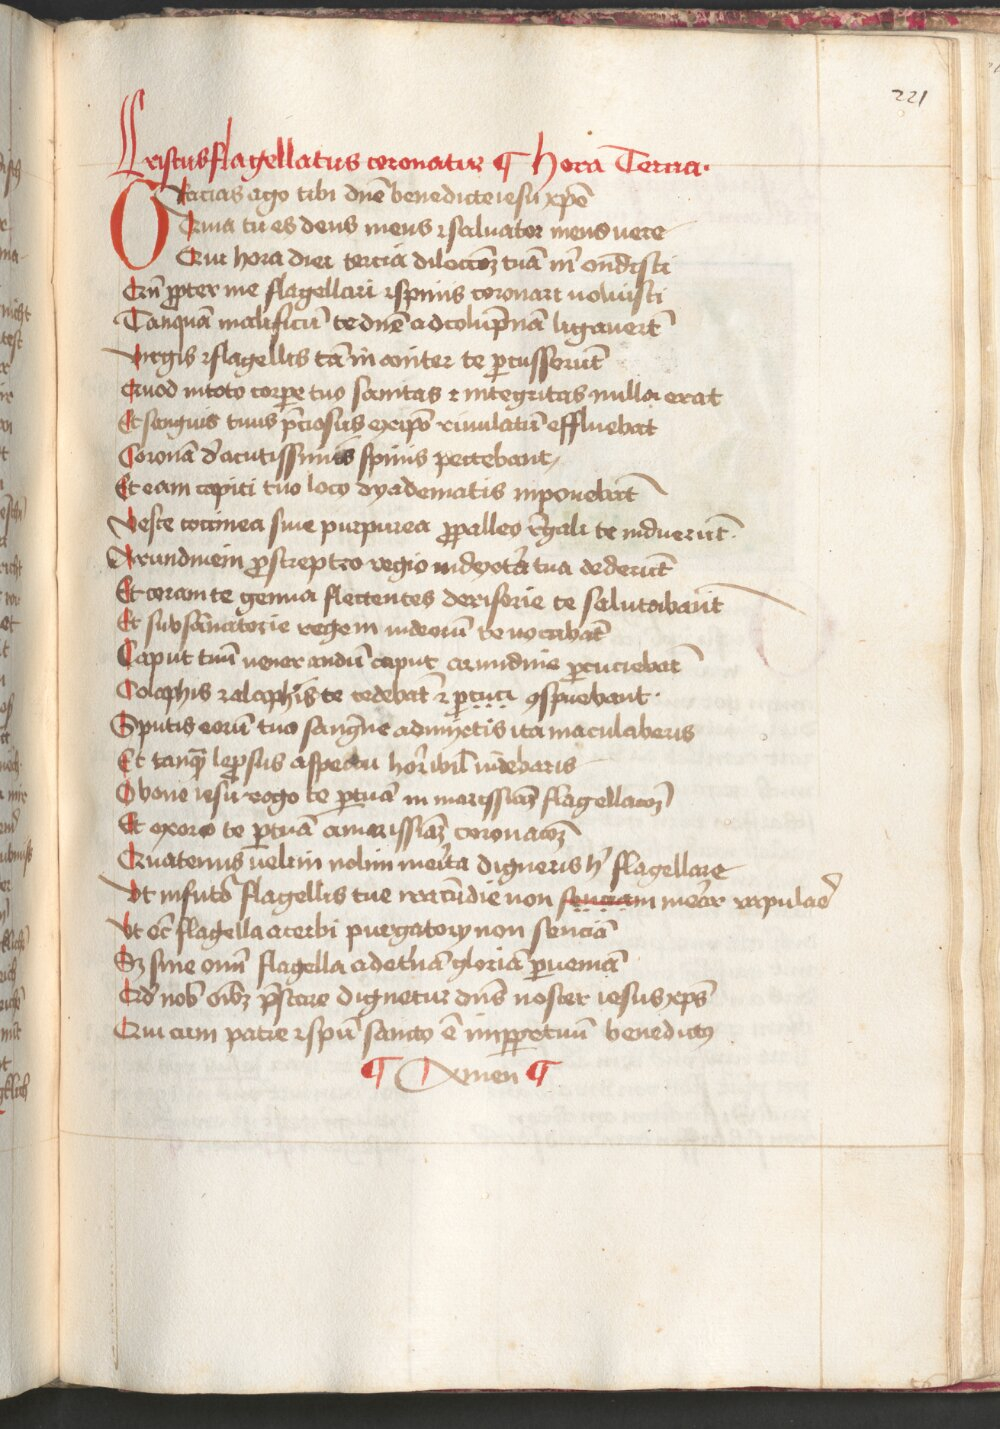 221
Cristus flagellatus coronatur ¶ Hora Tercia.
Gracias ago tibi dnē benedicte iesu xpē
Quia tu es deus meus ⁊ saluator meus vere
Qui hora diei tercia dilectōꝫ tuā m̄ ondisti
Cū ꝓpter me flagellari ⁊ spinis coronari voluisti
Tanquā maleficū te dnē ad colūpnā ligauerūt
Virgis ⁊ flagellis tā inmaniter te ꝑcusserūt
Quod in toto corpe tuo sanitas ⁊ integritas nulla erat
Et sanguis tuus p̄ciosus ex ip̄o riuulatim effluebat
Coronā d' acutissimis spinis pectebant
Et eam capiti tuo loco dyadematis inponebāt
Veste coccinea siue purpurea ꝓ palleo r̄gali te induerūt.
Arundinem ꝓ streptro regio in dext'a tua dederūt
Et coram te genua flectentes derisorie te salutabant
Et subsānatorie regem iudeorū te vocabāt
Caput tuū venerandū caput arundine ꝑcuciebāt
Colaphis ⁊ alaphis te cedebāt ⁊ ꝑcuci ꝯspuebant.
Sputis eorū tuo sangne admixtis ita maculaberis
Et tanq̄ lep̄sus aspectu horibil' videbaris
O bone iesu rogo te ꝑ tuā in mitissiā flagellacōꝫ
Et exoro te ꝑ tuā amarissiāꝫ coronacōꝫ
Quatenus velim nolim me ita digneris h' flagellare
Vt in futō flagellis tue iracūdie non senciam mer'ar vapulare
Vt ec̄ flagella acerbi purgatorij non senciā
Sꝫ sine omī flagella ad et'nā gloriā ꝑueniā
Qd' nob' oibꝫ p̄stare dignetur dn̄s noster iesus xp̄s
Qui cum patre ⁊ spū sancto ē imꝑpetuū benedictꝰ
¶ Amen ¶